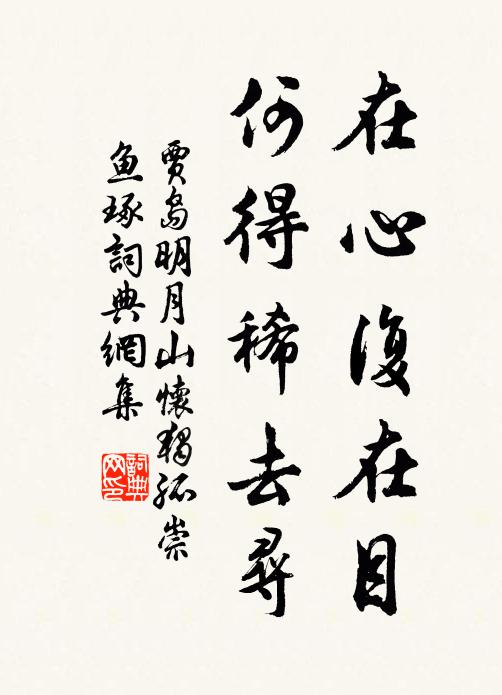 在心復在目
何得稀去尋
賈島明月山懷獨孤崇
魚琢詞典網集
詞典網印